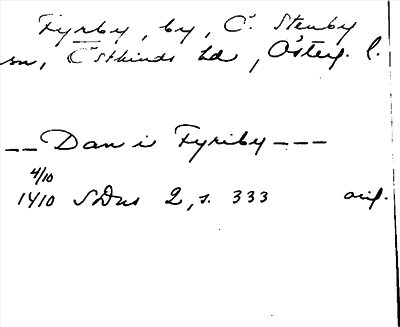 Fyrby, by, Ö. Stenby
sn, Östkinds hd, Österg. l.
-- Dan i Fyriby ---
4/10
1410 SDns 2, s. 333 orig.